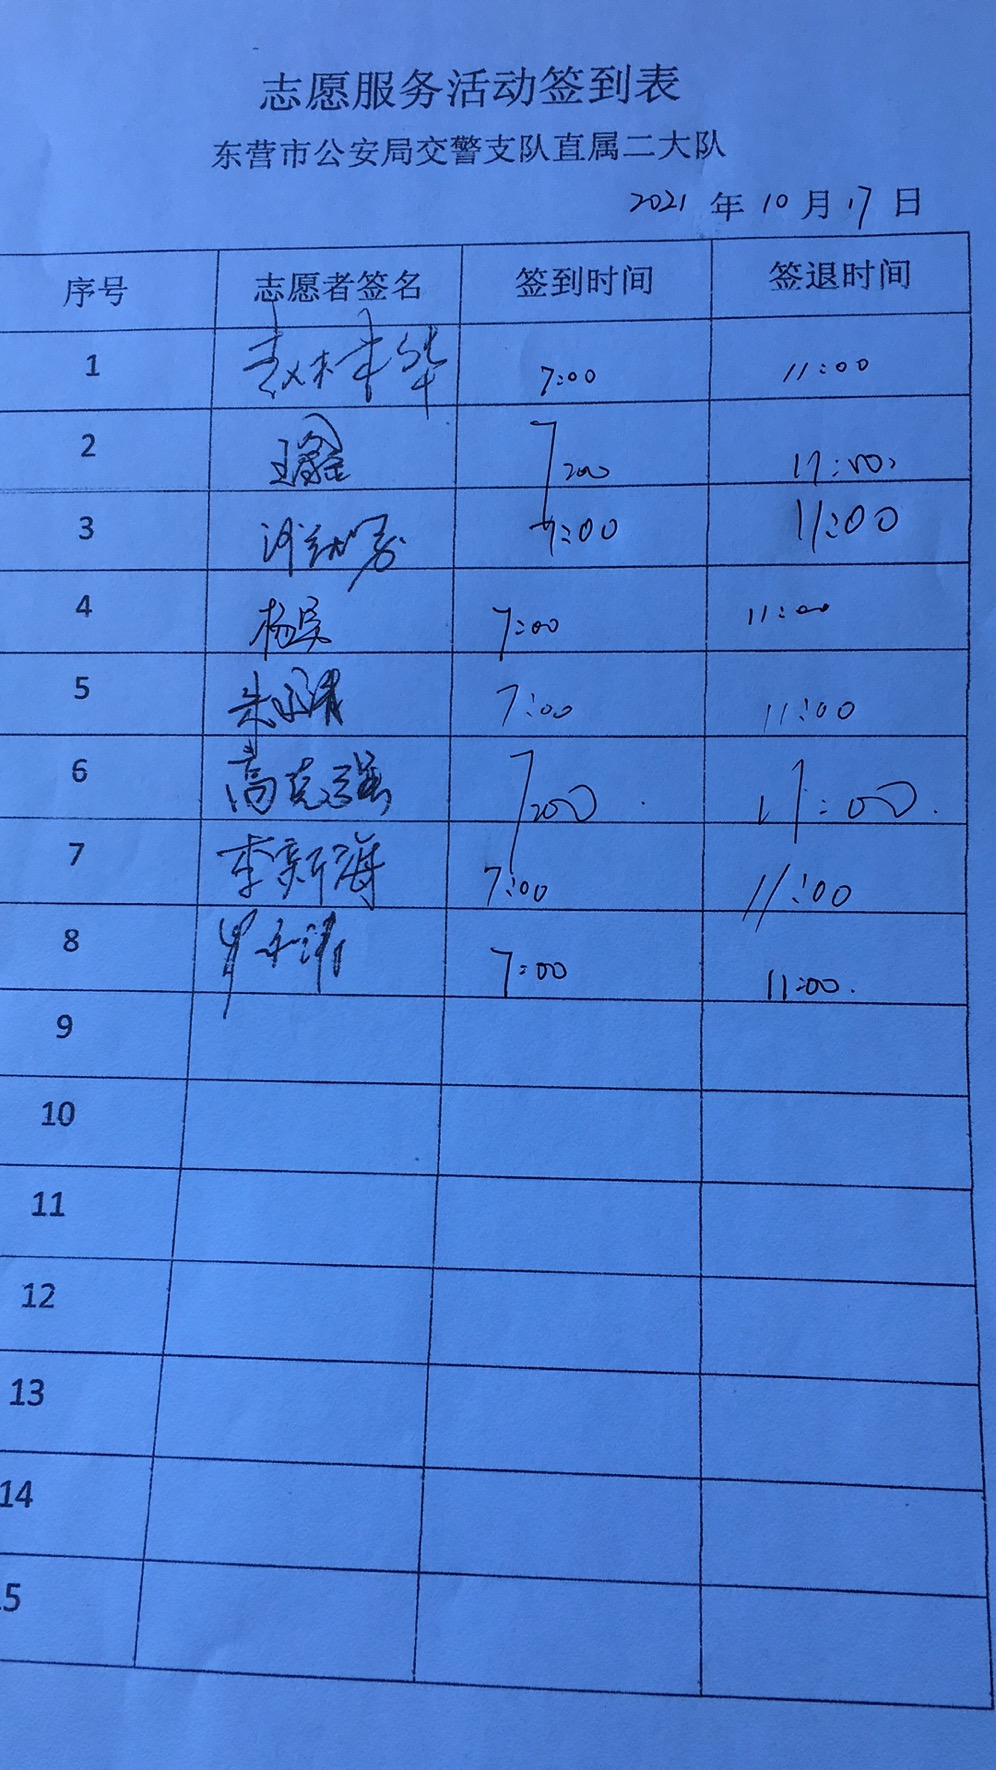 志愿服务活动签到表
东营市公安局交警支队直属二大队
2021 年 10 月 17 日
序号 志愿者签名 签到时间 签退时间
1 7:00 11:00
2 王鑫 7:00 11:00
3 7:00 11:00
4 7:00 11:00
5 7:00 11:00
6 高克强 7:00 11:00
7 李新海 7:00 11:00
8 7:00 11:00.
9
10
11
12
13
14
15